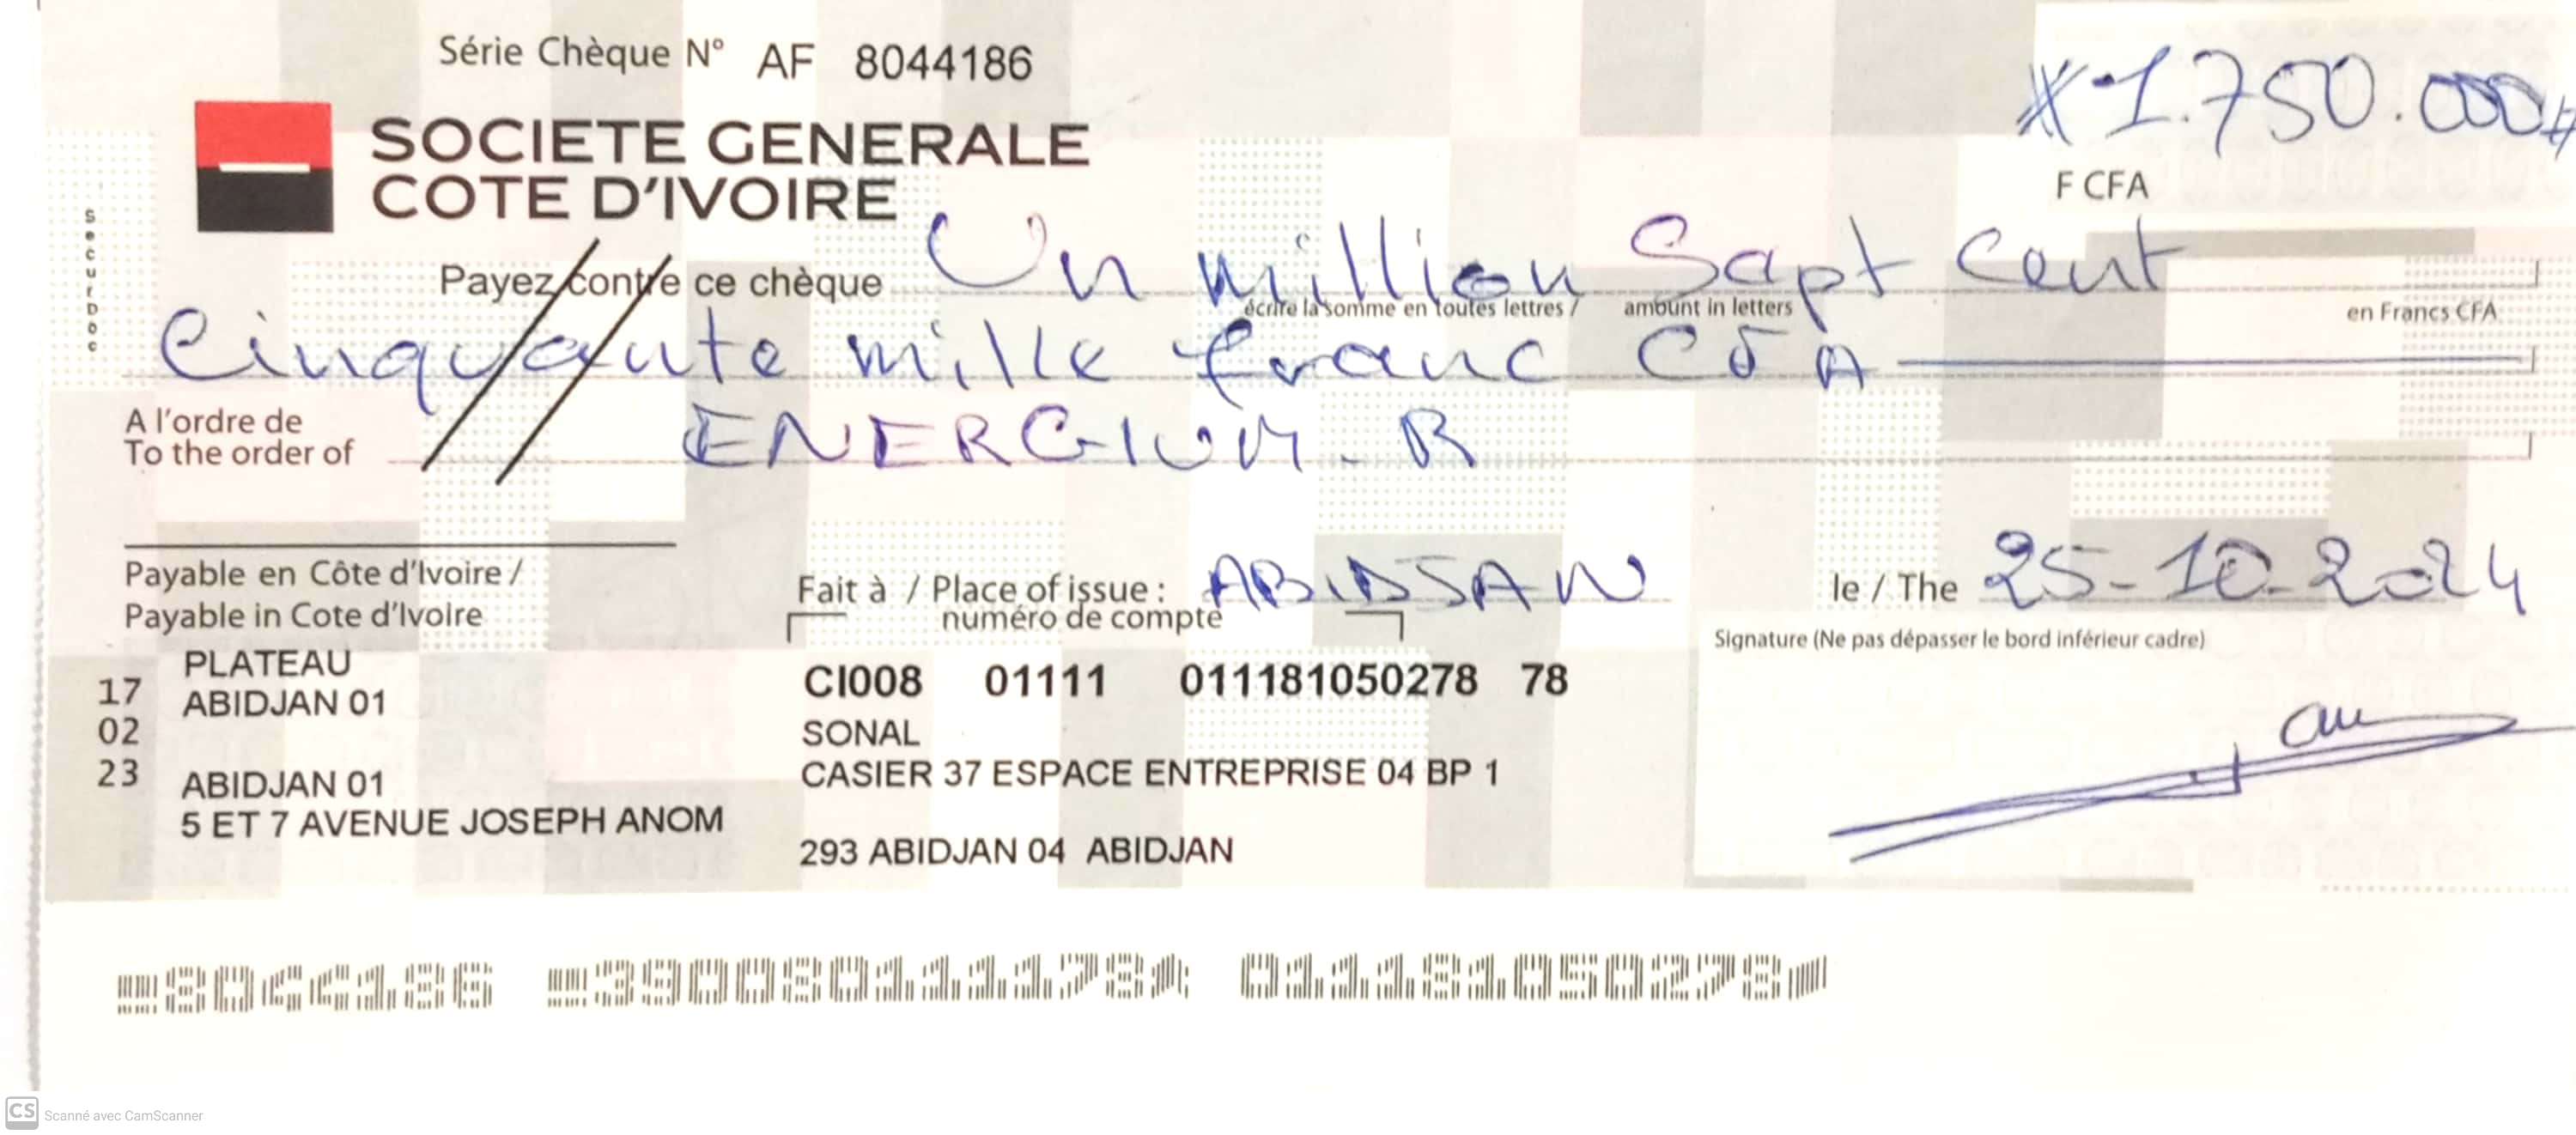 Série Chèque N° AF 8044186
#1.750.000#
SOCIETE GENERALE
COTE D'IVOIRE
F CFA
SecurDoc
Payez contre ce chèque Un million Sapt Cent
écrire la somme en toutes lettres / amount in letters
en Francs CFA
Cinquante mille franc CFA
A l'ordre de
To the order of
ENERGIUM.R
Payable en Côte d'Ivoire /
Payable in Cote d'Ivoire
Fait à / Place of issue : ABIDJAN
le / The 25-10-2024
numéro de compte
Signature (Ne pas dépasser le bord inférieur cadre)
PLATEAU
17
ABIDJAN 01
02
23
ABIDJAN 01
5 ET 7 AVENUE JOSEPH ANOM
CI008 01111 011181050278 78
SONAL
CASIER 37 ESPACE ENTREPRISE 04 BP 1
293 ABIDJAN 04 ABIDJAN
8044186 390080111178 011181050278
CS Scanné avec CamScanner